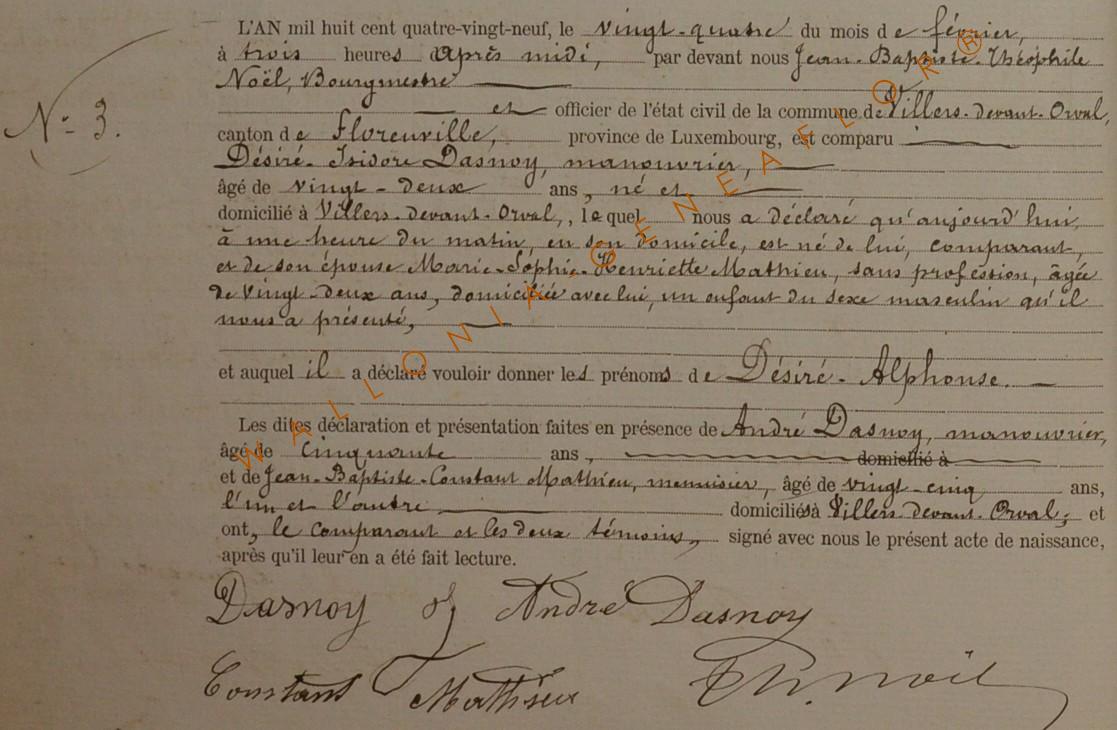 L'AN mil huit cent quatre-vingt-neuf, le vingt-quatre du mois de février,
à trois heures après midi, par devant nous Jean-Baptiste-Théophile
Noël, Bourgmestre
et officier de l'état civil de la commune de Villers-devant-Orval,
N° 3.
canton de Florenville, province de Luxembourg, est comparu
Désiré-Isidore Dasnoy, manouvrier,
âgé de vingt-deux ans, né et
domicilié à Villers-devant-Orval, lequel nous a déclaré qu'aujourd'hui,
à une heure du matin, en son domicile, est né de lui, comparant,
et de son épouse Marie-Sophie-Henriette Mathieu, sans profession, âgée
de vingt-deux ans, domiciliée avec lui, un enfant du sexe masculin qu'il
nous a présenté,
et auquel il a déclaré vouloir donner les prénoms de Désiré-Alphonse.
Les dites déclaration et présentation faites en présence de André Dasnoy, manouvrier,
âgé de cinquante ans, domicilié à
et de Jean-Baptiste-Constant Mathieu, menuisier, âgé de vingt-cinq ans,
l'un et l'autre domiciliés à Villers-devant-Orval; et
ont, le comparant et les deux témoins, signé avec nous le présent acte de naissance,
après qu'il leur en a été fait lecture.
Dasnoy André Dasnoy
Constant Mathieu Th. Noël
WALLONIA © GENEAFLOR ®